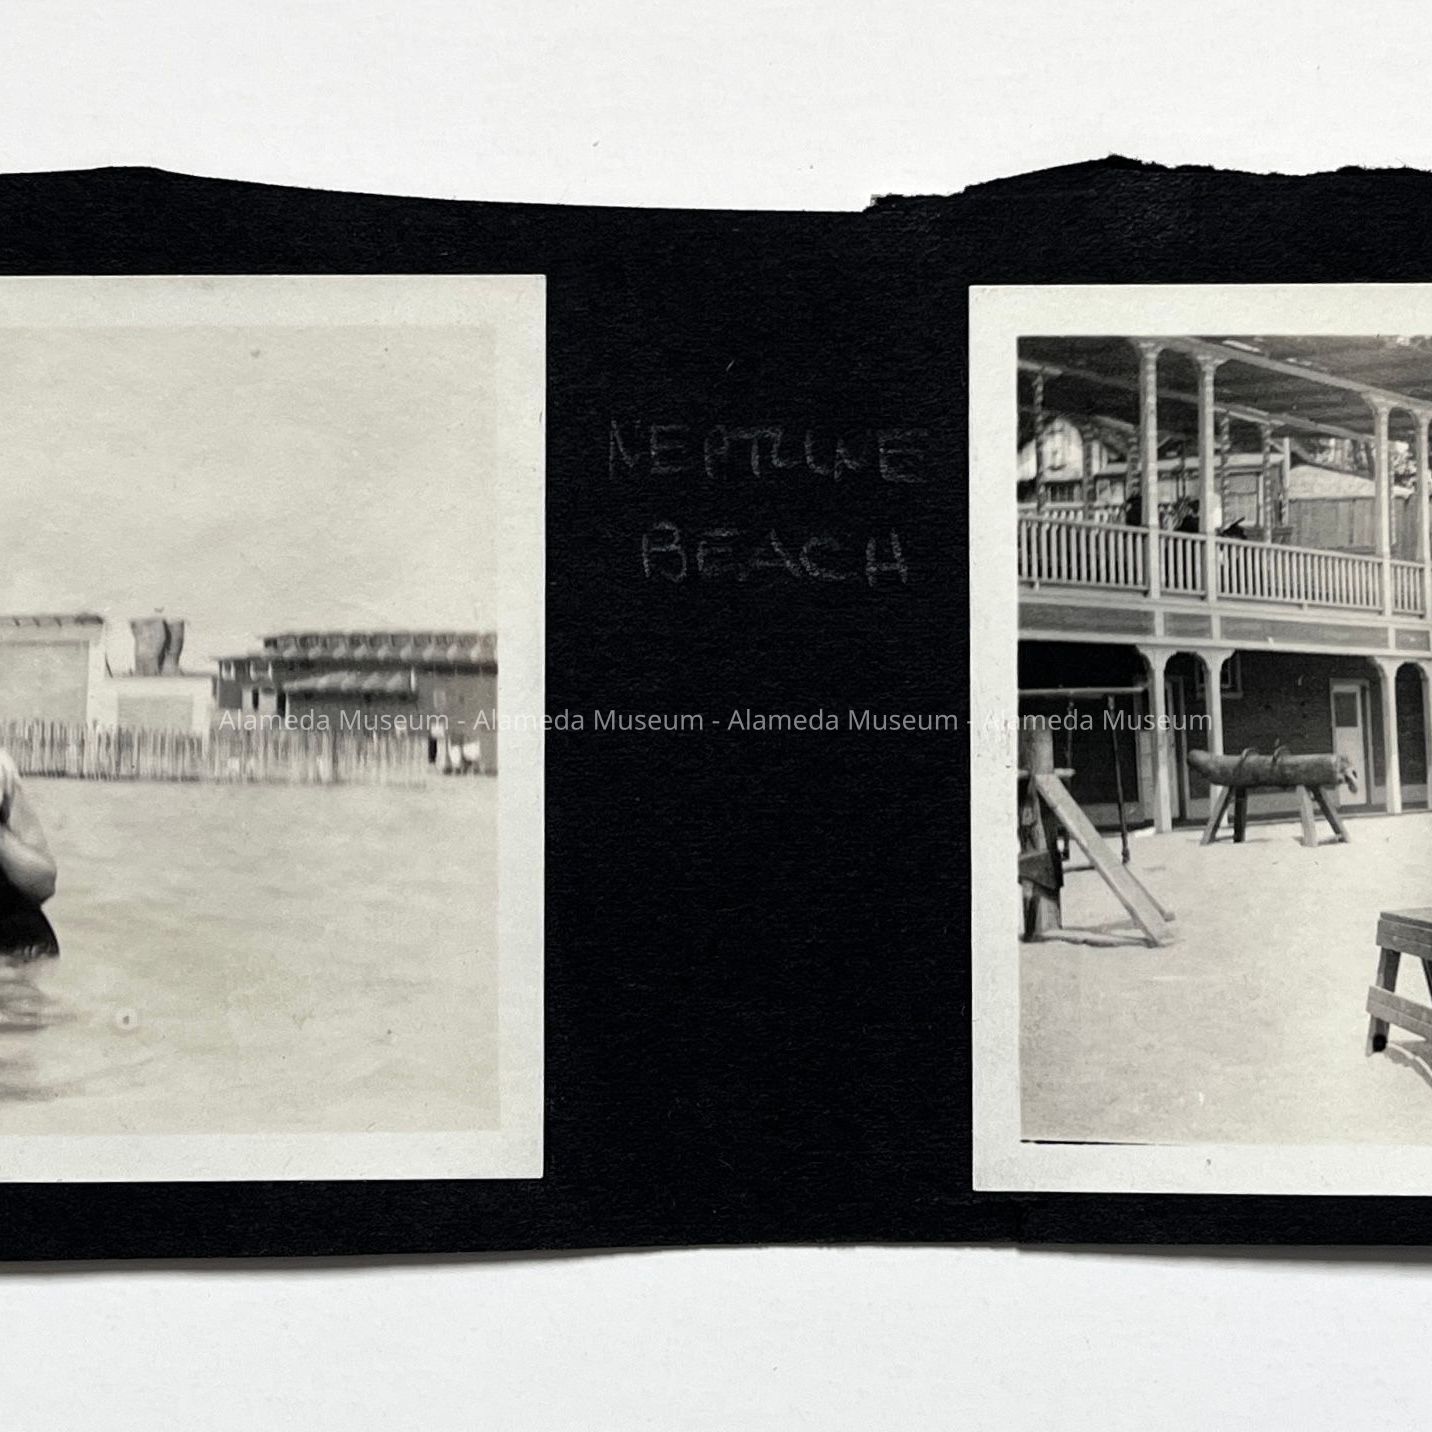 NEPTUNE
BEACH
Alameda Museum - Alameda Museum - Alameda Museum - Alameda Museum